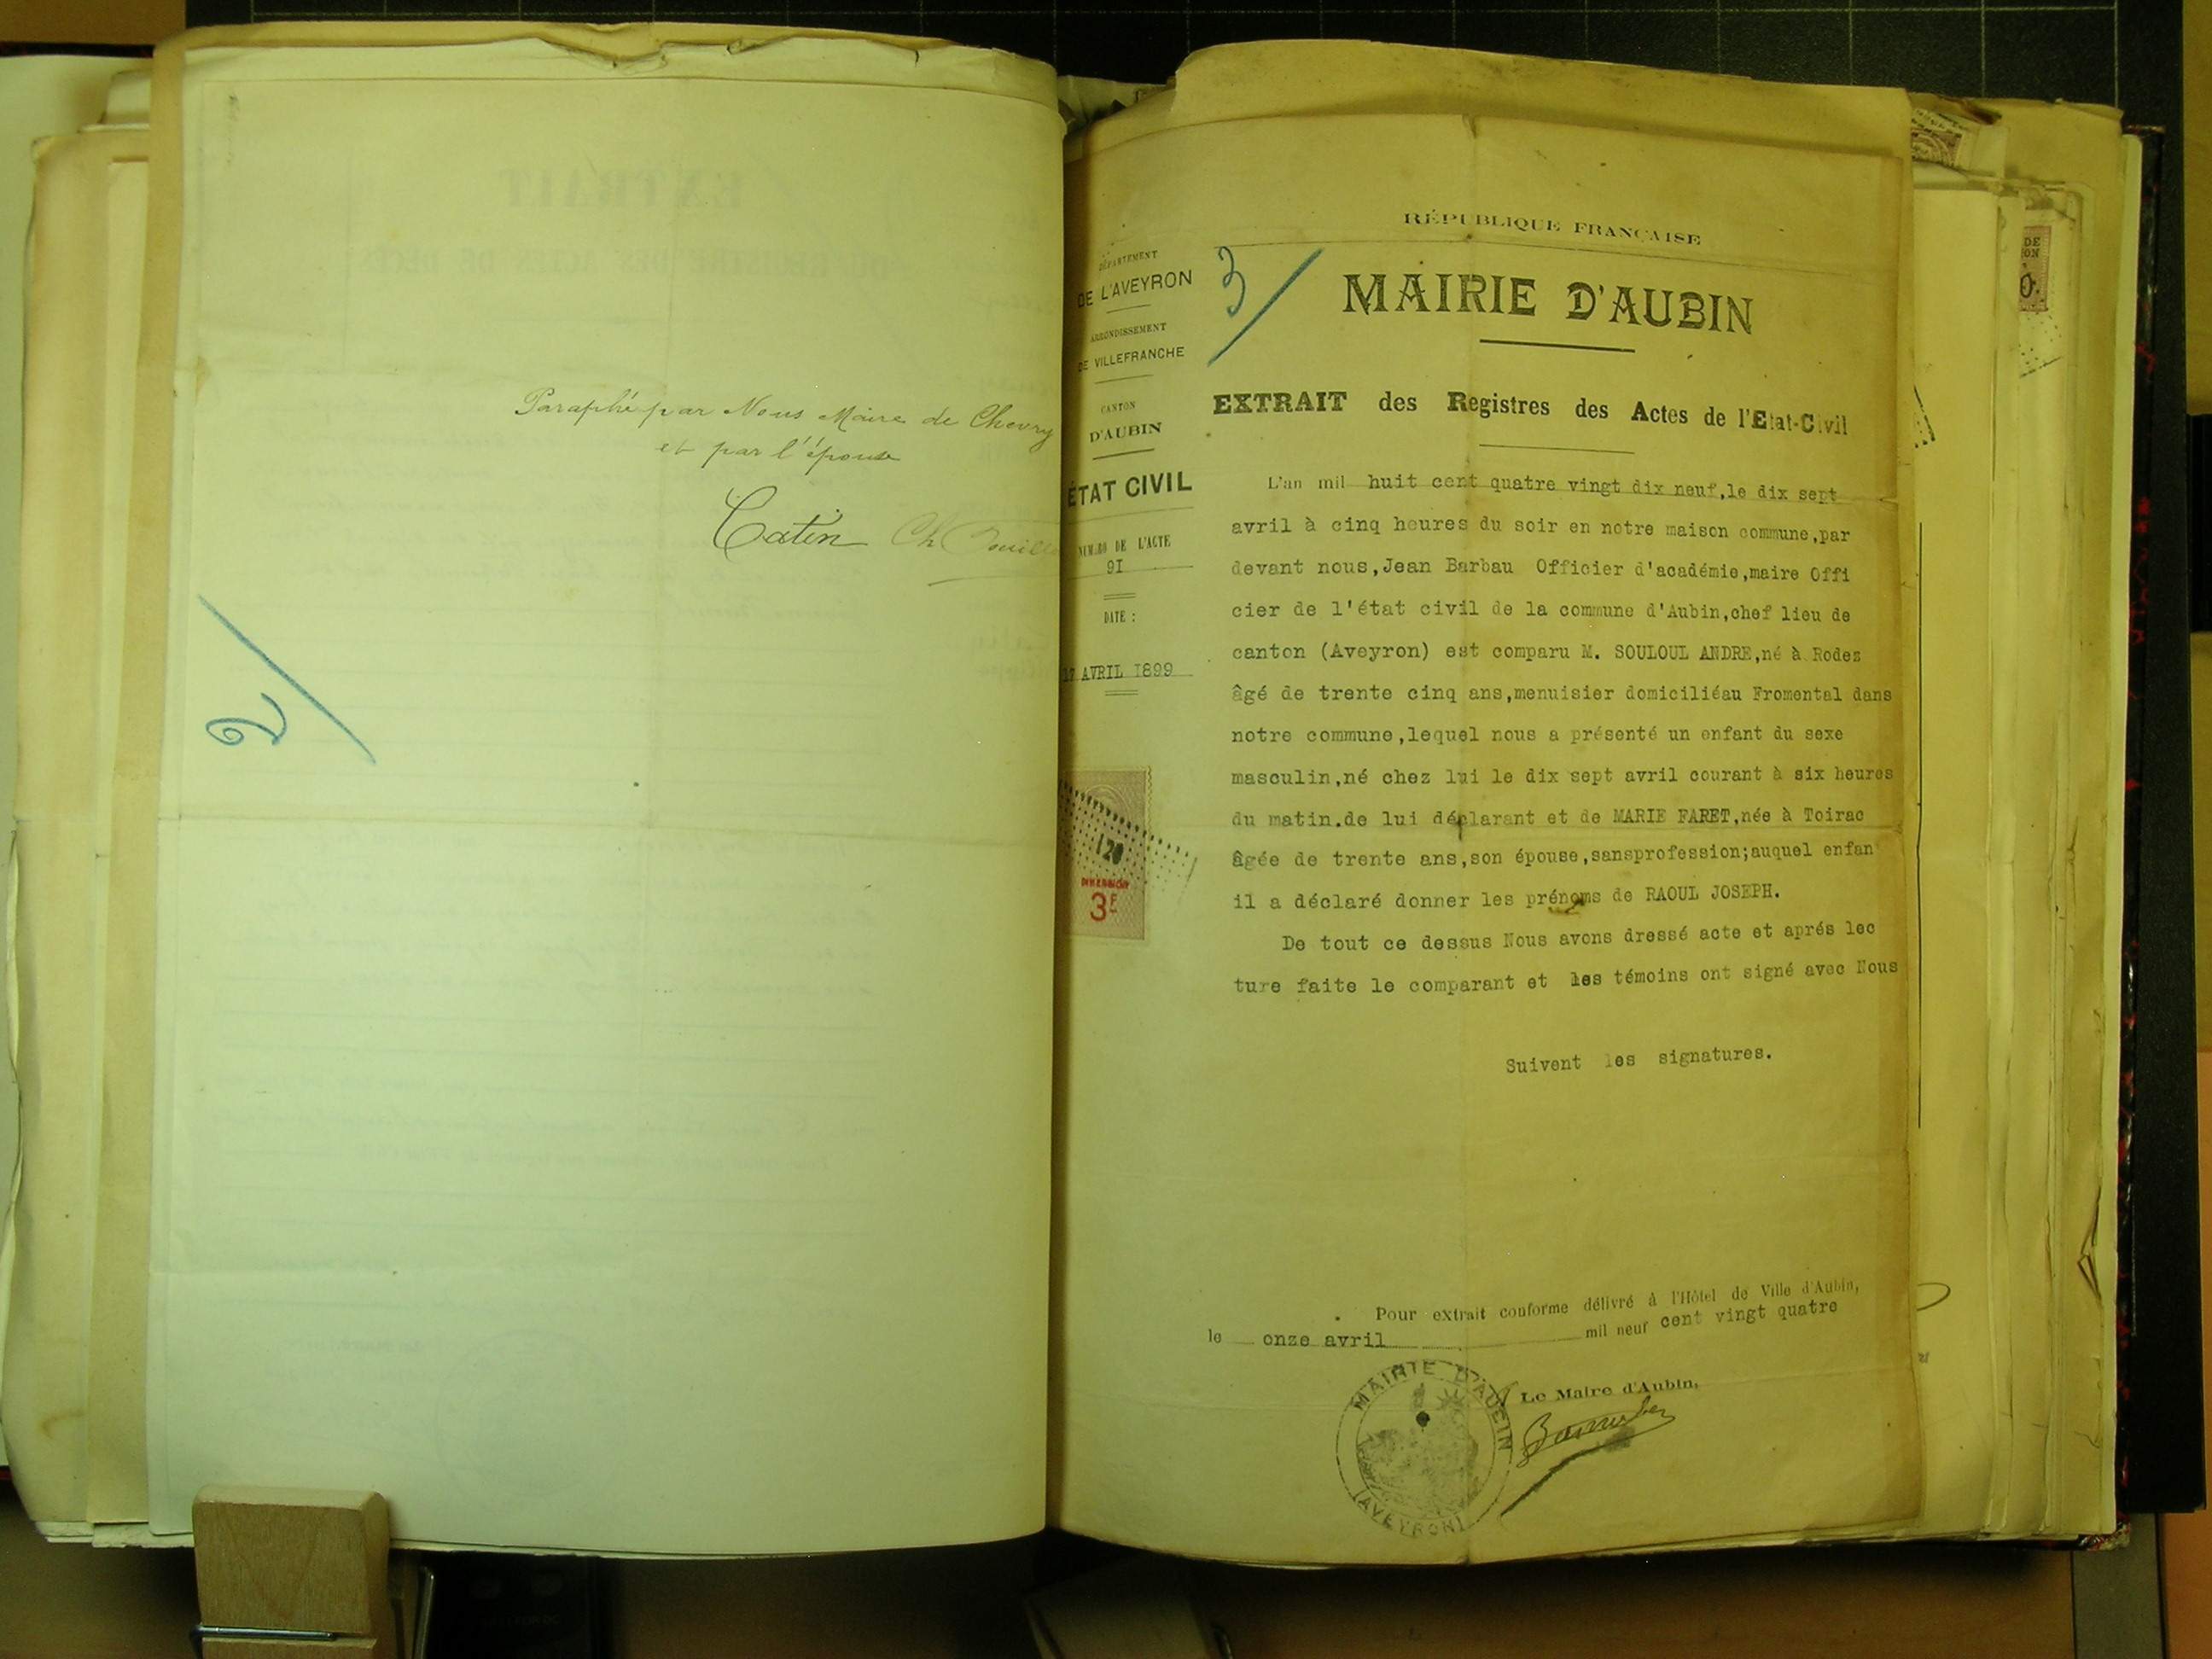 Paraphé par Nous Maire de Chevry
et par l'épouse
Catin Ch
2/
RÉPUBLIQUE FRANÇAISE
DÉPARTEMENT
DE L'AVEYRON
ARRONDISSEMENT
DE VILLEFRANCHE
CANTON
D'AUBIN
ÉTAT CIVIL
NUMÉRO DE L'ACTE
9I
DATE :
17 AVRIL I899
120
DIMENSION
3F
3/
MAIRIE D'AUBIN
EXTRAIT des Registres des Actes de l'Etat-Civil
L'an mil huit cent quatre vingt dix neuf,le dix sept
avril à cinq heures du soir en notre maison commune,par
devant nous,Jean Barbau Officier d'académie,maire Offi
cier de l'état civil de la commune d'Aubin,chef lieu de
canton (Aveyron) est comparu M. SOULOUL ANDRE,né à Rodes
âgé de trente cinq ans,menuisier domiciliéau Fromental dans
notre commune,lequel nous a présenté un enfant du sexe
masculin,né chez lui le dix sept avril courant à six heures
du matin.de lui déclarant et de MARIE FARET,née à Toirac
âgée de trente ans,son épouse,sansprofession;auquel enfan
il a déclaré donner les prénoms de RAOUL JOSEPH.
De tout ce dessus Nous avons dressé acte et aprés lec
ture faite le comparant et les témoins ont signé avec Nous
Suivent les signatures.
Pour extrait conforme délivré à l'Hôtel de Ville d'Aubin,
le onze avril mil neuf cent vingt quatre
Le Maire d'Aubin,
MAIRIE D'AUBIN
(AVEYRON)
DE
ON
0.